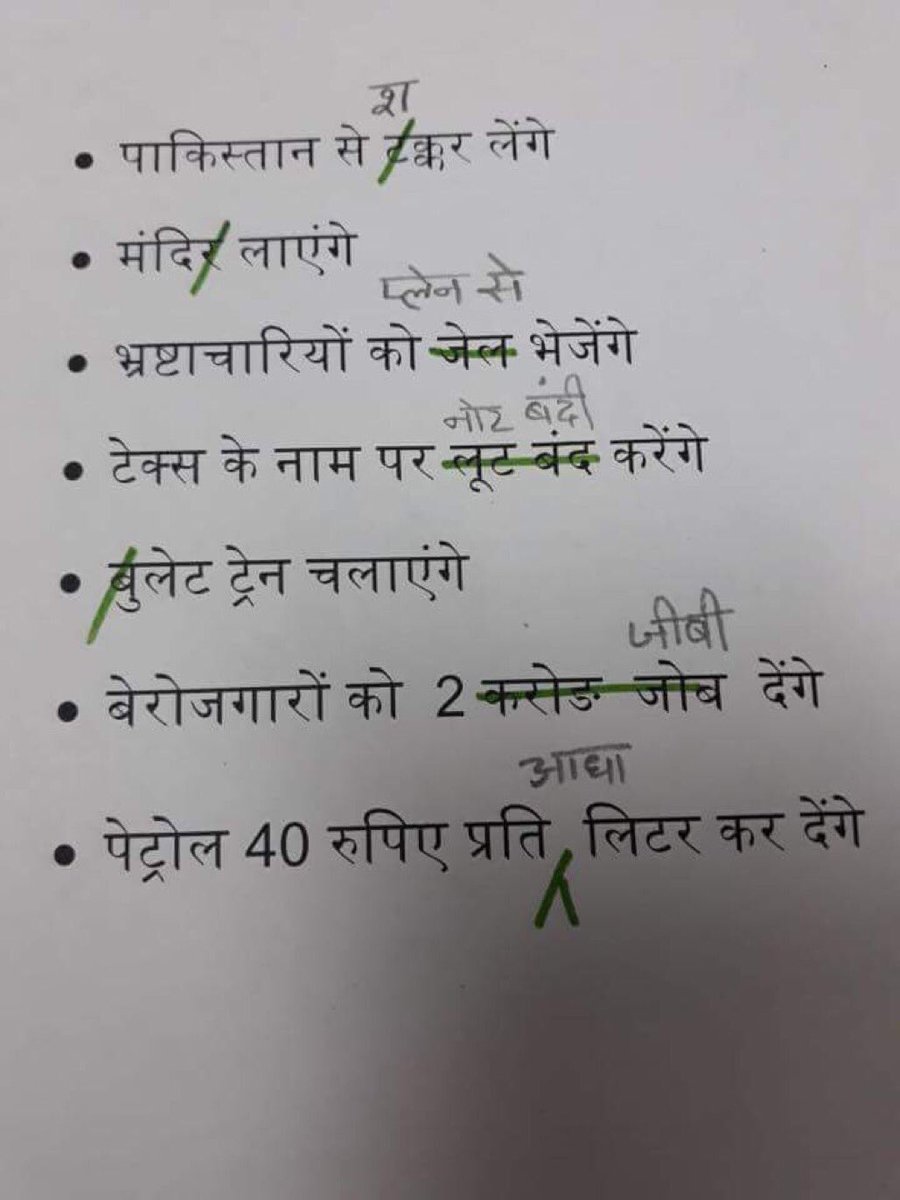 श
• पाकिस्तान से टक्कर लेंगे
• मंदिर लाएंगे
प्लेन से
• भ्रष्टाचारियों को जेल भेजेंगे
नोट बंदी
• टेक्स के नाम पर लूट बंद करेंगे
• बुलेट ट्रेन चलाएंगे
जीबी
• बेरोजगारों को 2 करोङ जोब देंगे
आधा
• पेट्रोल 40 रुपिए प्रति लिटर कर देंगे